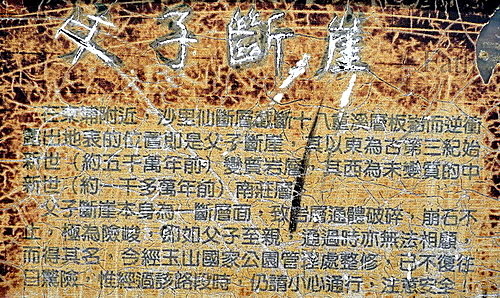 父子斷崖
在本帶附近，沙里仙斷層截斷十八重溪層板岩而逆衝
出地表的位置即是父子斷崖，其以東為古第三紀始
新世（約五千萬年前）變質岩層，其西為未變質的中
新世（約一千多萬年前）南莊層
父子斷崖本身為一斷層面，致岩層遍體破碎，崩石不
止，極為險峻，即如父子至親，通過時亦無法相顧，
而得其名，今經玉山國家公園管理處整修，已不復往
日驚險，惟經過該路段時，仍請小心通行，注意安全